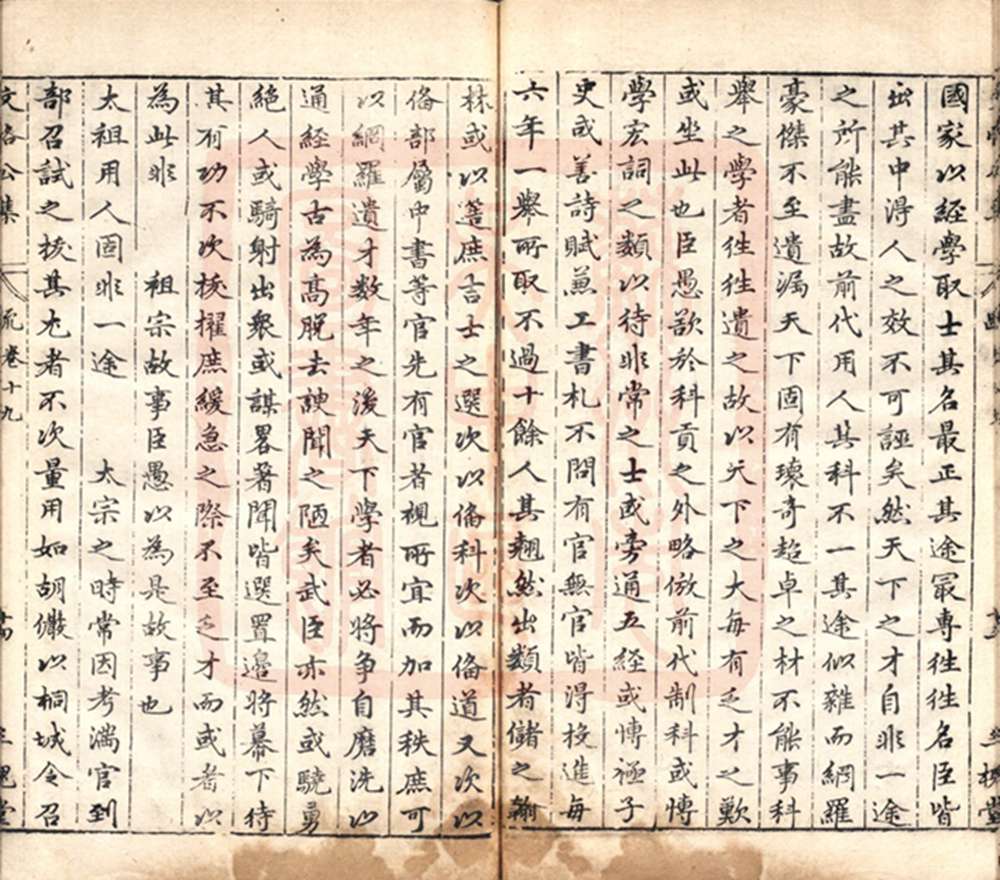 國家以經學取士其名最正其途最專徃徃名臣皆
出其中得人之效不可誣矣然天下之才自非一途
之所能盡故前代用人其科不一其途似雜而網羅
豪傑不至遺漏天下固有瓌奇超卓之材不能事科
舉之學者徃徃遺之故以天下之大每有乏才之歎
或坐此也臣愚欲於科貢之外略倣前代制科或博
學宏詞之類以待非常之士或旁通五經或博極子
史或善詩賦兼工書札不問有官無官皆得投進每
六年一舉所取不過十餘人其翹然出類者儲之翰
林或以簉庶吉士之選次以俻科次以俻道又次以
俻部屬中書等官先有官者視所宜而加其秩庶可
以網羅遺才數年之後天下學者必將爭自磨洗以
通經學古為高脫去諛聞之陋矣武臣亦然或驍勇
絕人或騎射出衆或謀畧著聞皆選置邊將幕下待
其有功不次擢庶緩急之際不至乏才而或者以
為此非 祖宗故事臣愚以為是故事也
太祖用人固非一途 太宗之時常因考滿官到
部召試之校其尤者不次量用如胡儼以桐城令召
文恪公集 疏卷十九 三槐堂